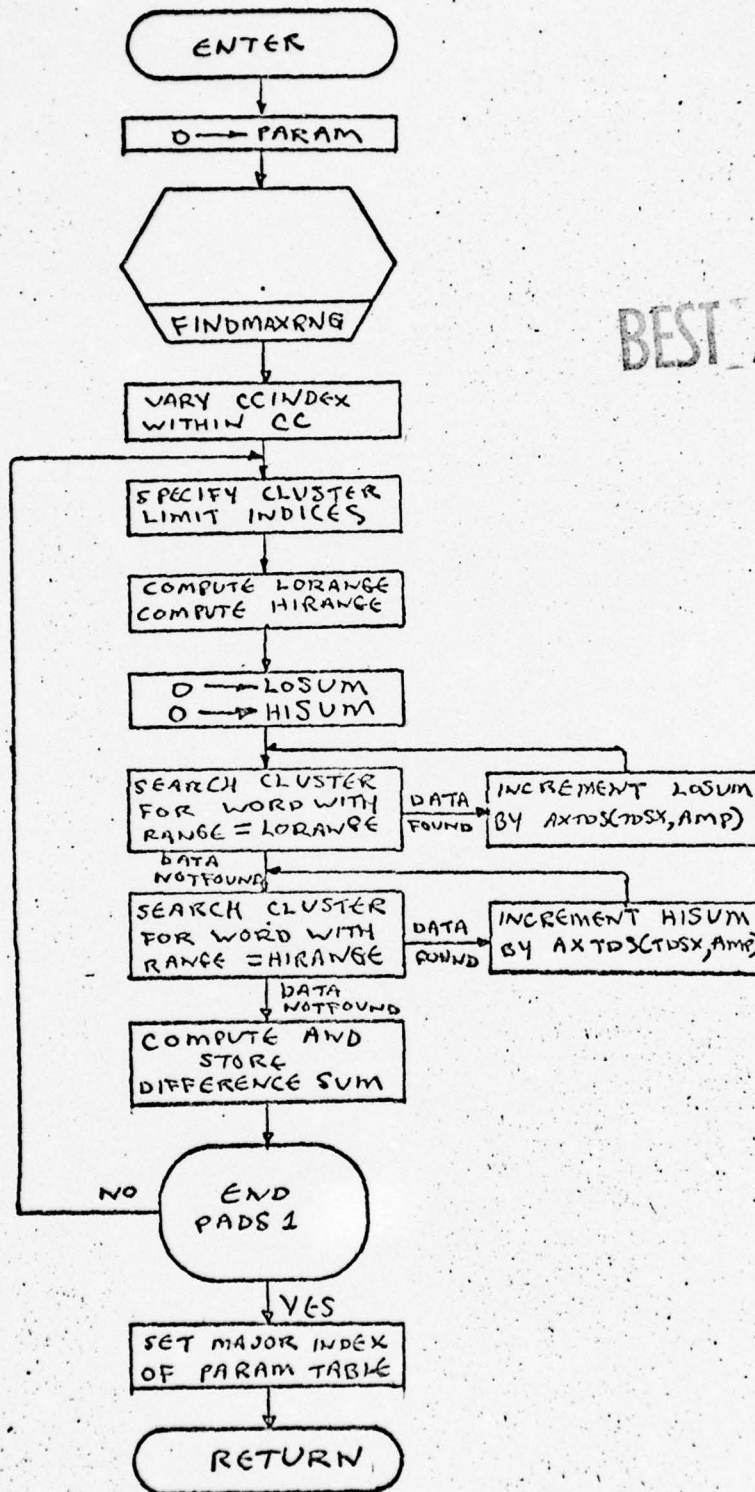 ENTER
0 → PARAM
FINDMAXRNG
BEST
VARY CCINDEX
WITHIN CC
SPECIFY CLUSTER
LIMIT INDICES
COMPUTE LORANGE
COMPUTE HIRANGE
0 → LOSUM
0 → HISUM
SEARCH CLUSTER
FOR WORD WITH
RANGE = LORANGE
DATA
FOUND
INCREMENT LOSUM
BY AXTDS(TDSX,AMP)
DATA
NOTFOUND
SEARCH CLUSTER
FOR WORD WITH
RANGE = HIRANGE
DATA
FOUND
INCREMENT HISUM
BY AXTDS(TDSX,AMP)
DATA
NOTFOUND
COMPUTE AND
STORE
DIFFERENCE SUM
NO
END
PADS 1
YES
SET MAJOR INDEX
OF PARAM TABLE
RETURN